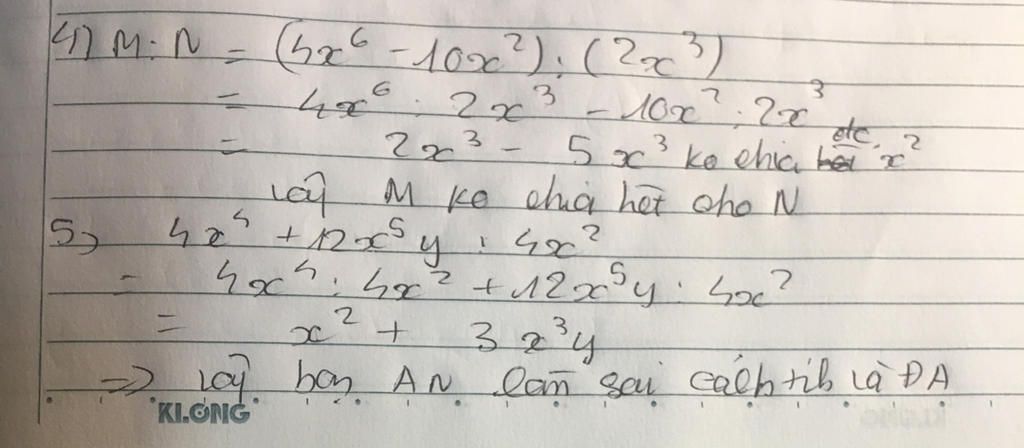 4) M : N = (4x⁶ - 10x²) : (2x³)
= 4x⁶ : 2x³ - 10x² : 2x³
= 2x³ - 5x³ ko chia đc x²
Vậy M ko chia hết cho N
5) 4x⁴ + 12x⁵y : 4x²
= 4x⁴ : 4x² + 12x⁵y : 4x²
= x² + 3x³y
=> Vậy bạn AN làm sai cách tih là ĐA
KLONG